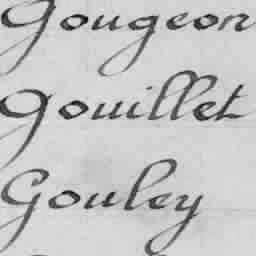 Gougeon
Gouillet
Gouley